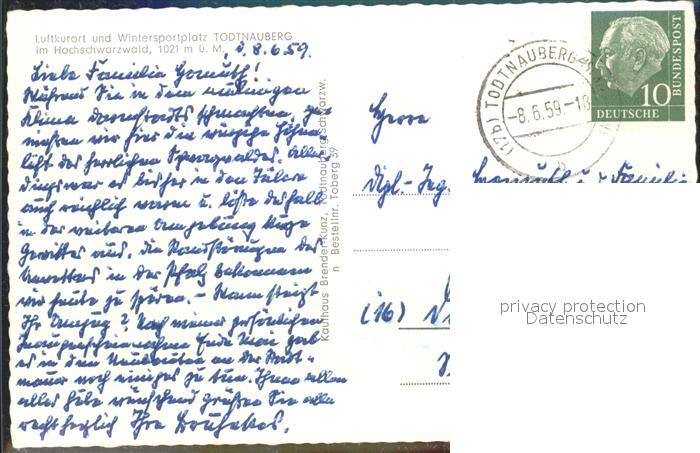 Luftkurort und Wintersportplatz TODTNAUBERG
im Hochschwarzwald, 1021 m ü. M.
d. 8.6.59.
Liebe Familie Gomuth!
Während Sie in dem
Klima Darmstadts schmachten,
wir hier die würzige Höhen-
luft des herrlichen Schwarzwaldes. Aller-
dings war es bisher in den Tälern
auch reichlich warm u. löste deshalb
in der weiteren Umgebung
Gewitter aus, die
Unwetters in der Pfalz bekommen
wir heute zu spüren. – Wann steigt
Ihr Umzug? Nach meiner persönlichen
Inaugenscheinnahme Ende Mai gab
es in den Neubauten an der Stadt-
mauer noch einiges zu tun. Ihnen allen
alles Gute wünschend grüßen Sie alle
recht herzlich Ihre
Kaufhaus Brender-Kunz, Todtnauberg/Schwarzw.
n Bestellnr. Toberg 59
(17b) TODTNAUBERG
-8.6.59.-18
b
10
DEUTSCHE
BUNDESPOST
Herrn
Dipl.-Ing. Gomuth u. Familie
(16)
privacy protection
Datenschutz